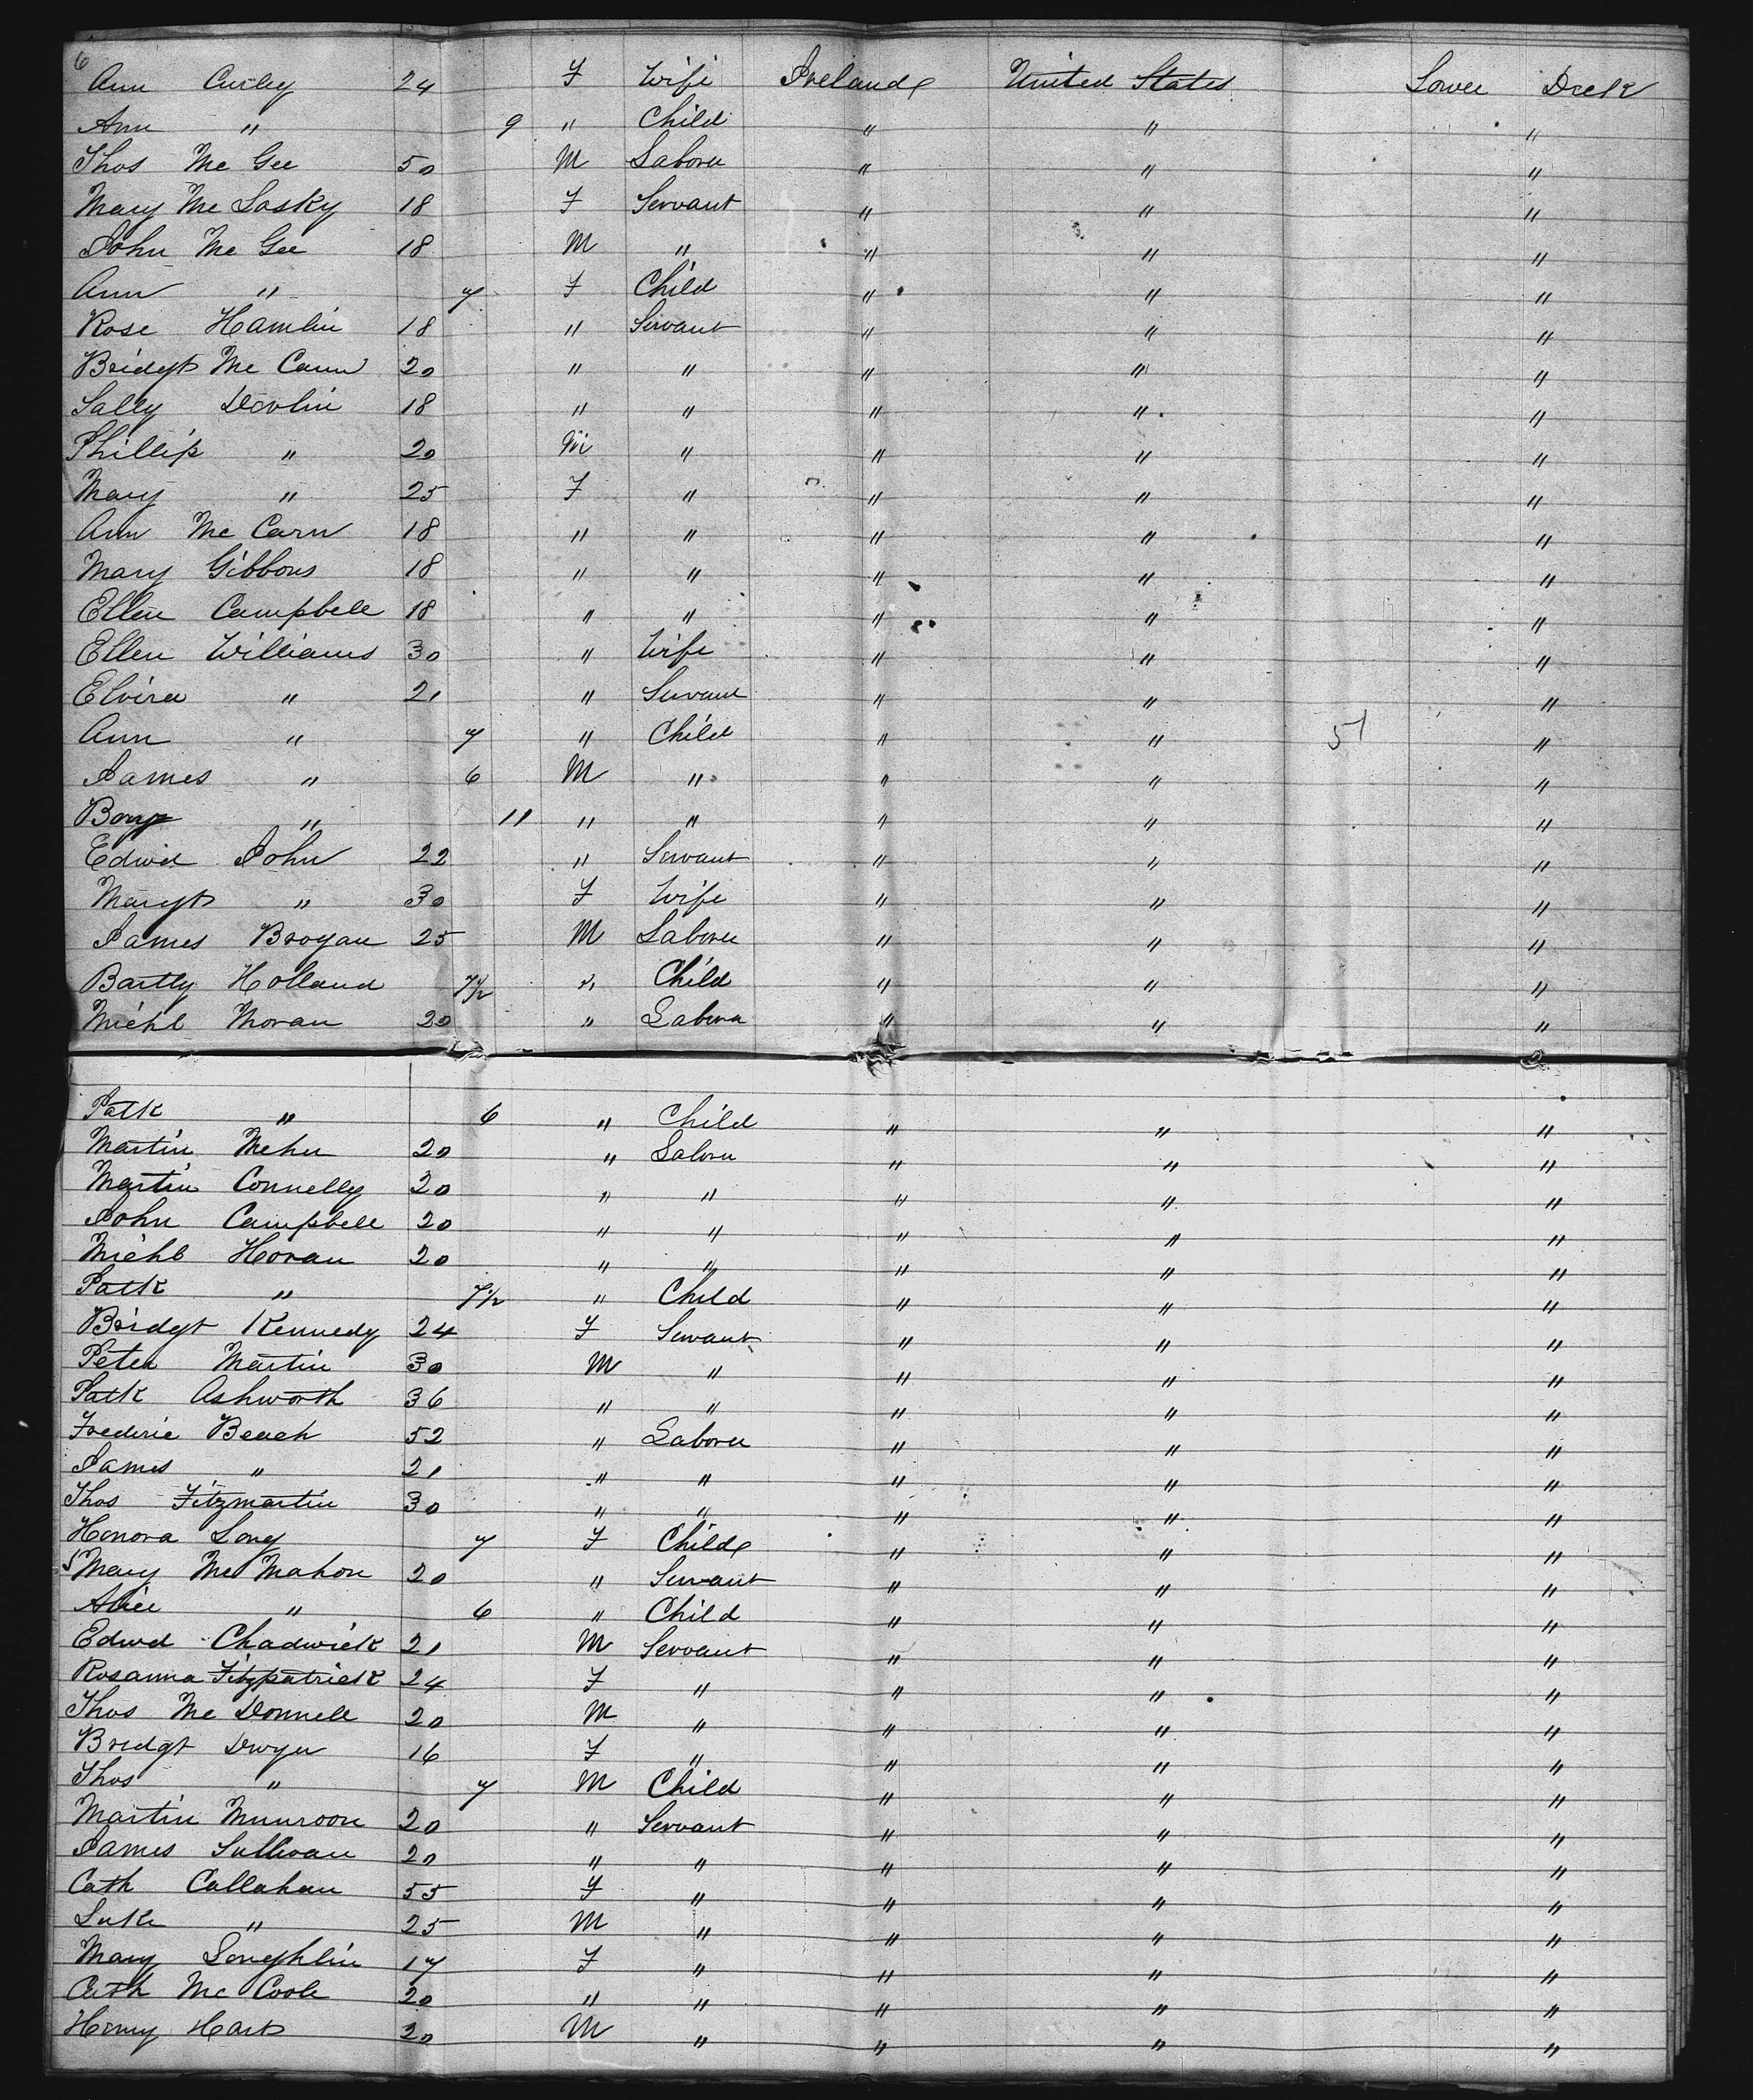 6
Ann Curley 24 F Wife Ireland United States Lower Deck
Ann " 9 " Child " " "
Thos Mc Gee 50 M Laborer " " "
Mary Mc Losky 18 F Servant " " "
John Mc Gee 18 M " " " "
Ann " 7 F Child " " "
Rose Hamlin 18 " Servant " " "
Bridgt Mc Cann 20 " " " " "
Sally Devlin 18 " " " " "
Phillip " 20 M " " " "
Mary " 25 F " " " "
Ann Mc Carn 18 " " " " "
Mary Gibbons 18 " " " " "
Ellen Campbell 18 " " " " "
Ellen Williams 30 " Wife " " "
Elvira " 21 " Servant " " "
Ann " 7 " Child " " 51 "
James " 6 M " " " "
" 11 " " " " "
Edwd John 22 " Servant " " "
Margt " 30 F Wife " " "
James Brogan 25 M Laborer " " "
Bartly Holland 7½ " Child " " "
Michl Moran 20 " Laborer " " "
Patk " 6 " Child " " "
Martin 20 " Laborer " " "
Martin Connelly 20 " " " " "
John Campbell 20 " " " " "
Michl Horan 20 " " " " "
Patk " 7½ " Child " " "
Bridgt Kennedy 24 F Servant " " "
Peter Martin 30 M " " " "
Patk Ashworth 36 " " " " "
Frederic Beach 52 " Laborer " " "
James " 21 " " " " "
Thos Fitzmartin 30 " " " " "
Honora Long 7 F Child " " "
Mary Mc Mahon 20 " Servant " " "
Alice " 6 " Child " " "
Edwd Chadwick 21 M Servant " " "
Rosanna Fitzpatrick 24 F " " " "
Thos Mc Donnell 20 M " " " "
Bridgt Dwyer 16 F " " " "
Thos " 7 M Child " " "
Martin Munroon 20 " Servant " " "
James Sullivan 20 " " " " "
Cath Callahan 55 F " " " "
Luke " 25 M " " " "
Mary Loughlin 17 F " " " "
Cath Mc Cool 20 " " " " "
Henry Hart 20 M " " " "